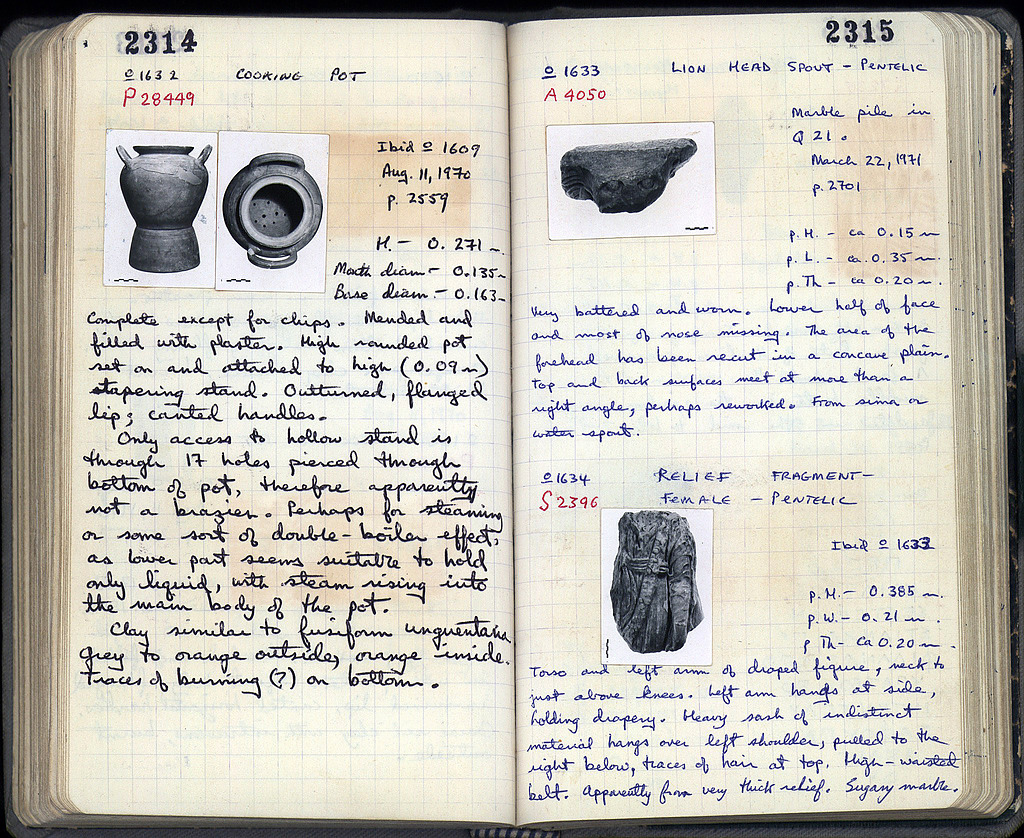 2314
O 1632 COOKING POT
P 28449
Ibid O 1609
Aug. 11, 1970
p. 2559
H. – 0.271 m
Mouth diam – 0.135 m
Base diam. – 0.163 –
Complete except for chips. Mended and
filled with plaster. High rounded pot
set on and attached to high (0.09 m)
stapering stand. Outturned, flanged
lip; canted handles.
Only access to hollow stand is
through 17 holes pierced through
bottom of pot, therefore apparently
not a brazier. Perhaps for steaming
or some sort of double-boiler effect,
as lower part seems suitable to hold
only liquid, with steam rising into
the main body of the pot.
Clay similar to fusiform unguentaria
grey to orange outside, orange inside.
Traces of burning (?) on bottom.
2315
O 1633 LION HEAD SPOUT – PENTELIC
A 4050
Marble pile in
Q 21.
March 22, 1971
p. 2701
p. H. – ca 0.15 m
p. L. – ca. 0.35 m.
p. Th – ca 0.20 m.
Very battered and worn. Lower half of face
and most of nose missing. The area of the
forehead has been recut in a concave plain.
Top and back surfaces meet at more than a
right angle, perhaps reworked. From sima or
water spout.
O 1634 RELIEF FRAGMENT –
S 2396 FEMALE – PENTELIC
Ibid O 1633
p. H. – 0.385 m.
p. W. – 0.21 m.
p Th – ca 0.20 m.
Torso and left arm of draped figure, neck to
just above knees. Left arm hangs at side,
holding drapery. Heavy sash of indistinct
material hangs over left shoulder, pulled to the
right below, traces of hair at top. High-waisted
belt. Apparently from very thick relief. Sugary marble.